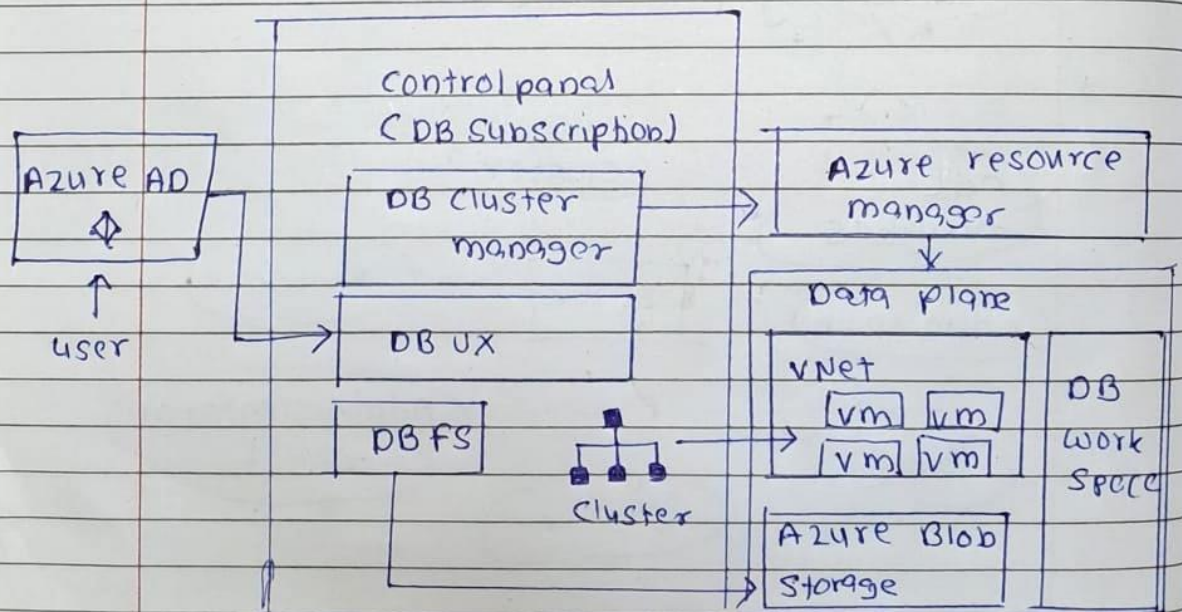 Control panal
(DB Subscription)
Azure AD
user
DB Cluster
manager
DB UX
DB FS
Cluster
Azure resource
manager
Data plane
VNet
vm vm
vm vm
DB
work
Spece
Azure Blob
Storage